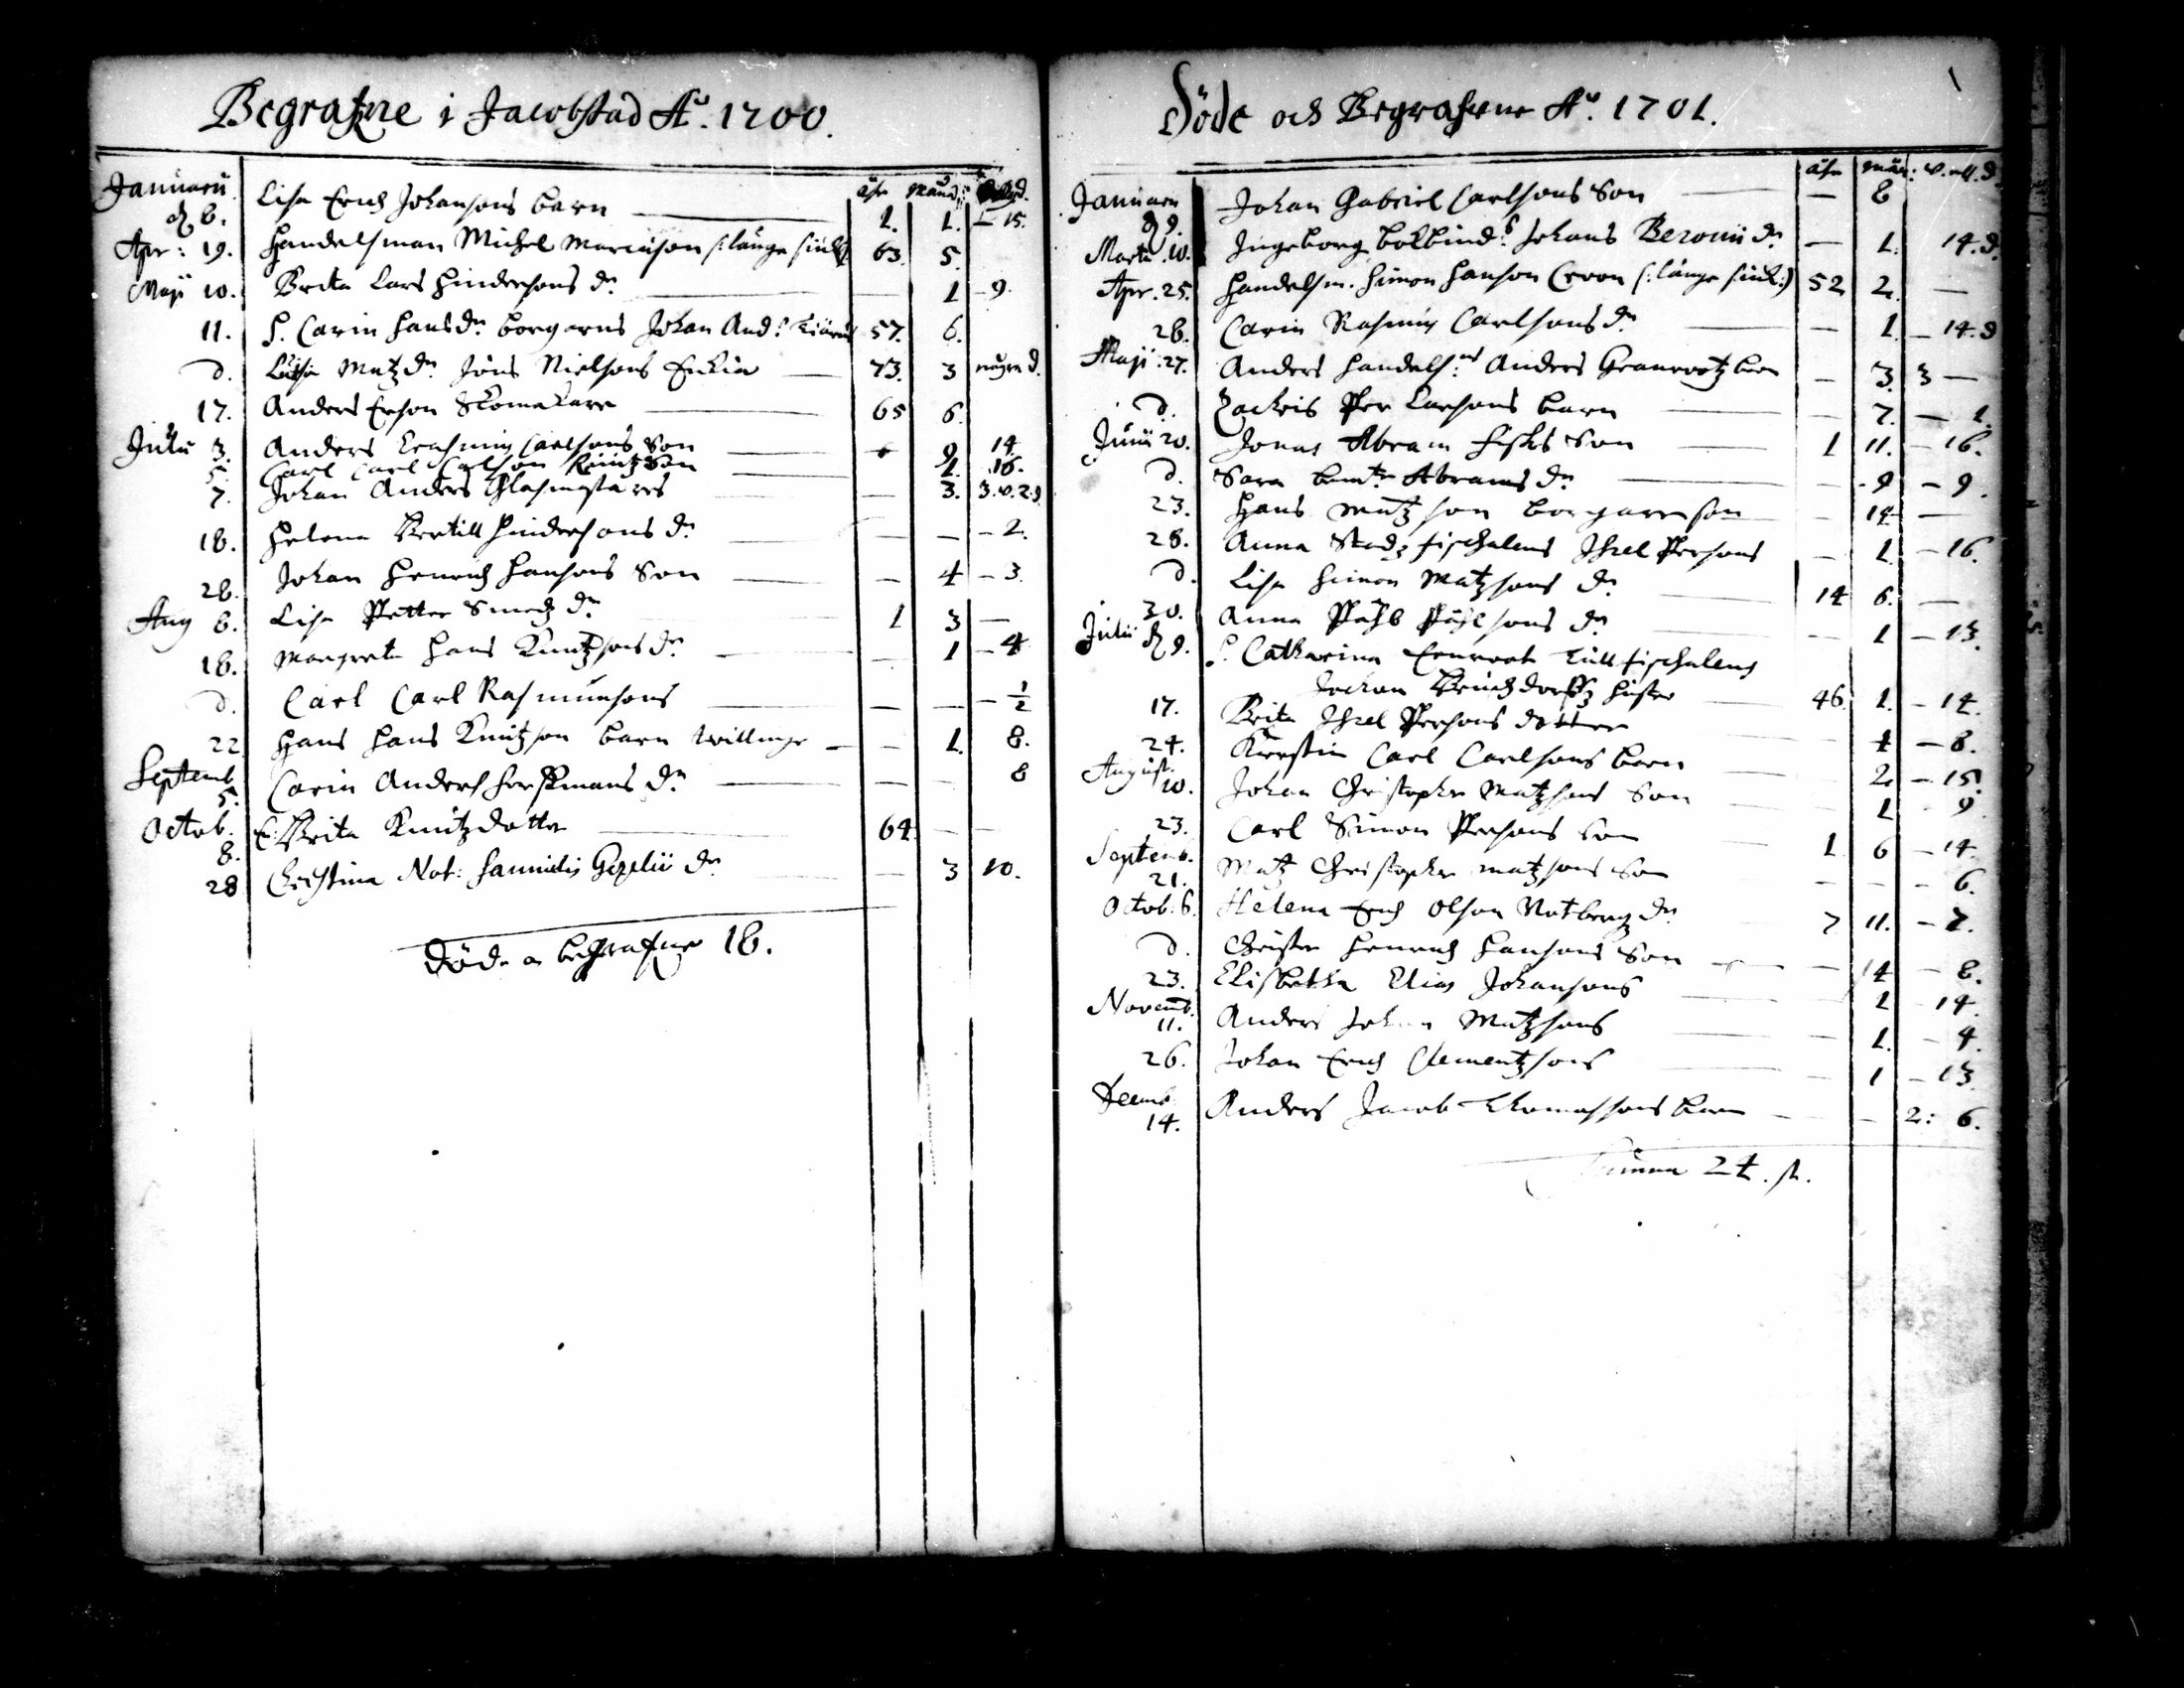 Begrafne i Jacobstad Aº. 1700.
Januarii åhr månd: d.
d 6. Lisa Erich Johansons barn 1. 1. – 15.
Apr: 19. Handelsman Michel Mariuson (: länge siuk :) 63. 5.
Maji 10. Brita Lars Hindersons dr. — 1 – 9.
11. H. Carin Hansdr. borgarens Johan And:s 57. 6.
d. Matzdr. Jöns Nielsons Enkia 73. 3 några d.
17. Anders Erson Skomakare 65 6.
Julii 3. Anders Erasmus Carlsons Son 9 14.
5. Carl Carl Carlson Knutz Son 1. 16.
7. Johan Anders Glasmestares — 3. 3. v. 2 d
18. Helena Bertill Hindersons dr. — — – 2.
28. Johan Henrich Hansons Son — 4 – 3.
Aug 6. Lisa Petter Smedz dr. 1 3 —
18. Margreta Hans Knutzsons dr. — 1 – 4
d. Carl Carl Rasmunsons — — – 1/2
22 Hans Hans Knutzson barn twillinge — 1. 8.
Septemb.
5. Carin Anders Forssmans dr. — — 8
Octob.
8. E: Brita Knutzdotter 64. — —
28 Christina Not: Samuelis Gezelii dr. — 3 10.
Döde o begrafne 18.
Döde och Begrafne Aº. 1701.
åhr mån: v. ell. d.
Januarii
d 9. Johan Gabriel Carlsons Son — 8
Martii 10. Ingeborg bokbind:s Johans Beronii dr. — 1. 14. d.
Apr. 25. Handelsm. Simon Hanson Croon (: länge siuk :) 52 2. —
28. Carin Rasmus Carlsons dr. — 1. – 14. d
Maji 27. Anders Handels:ns Anders Granrootz barn — 3. 3 —
d. Zachris Per Larsons barn — 7. – 1.
Junii 20. Jonas Abram Fisks Son 1 11. – 16.
d. Sara Abrams dr. — 9 – 9.
23. Hans Matzson borgarens son — 14 —
28. Anna Stadz fischalens Israel Persons — 1. – 16.
d. Lisa Simon Matzsons dr. 14 6. —
30. Anna Påhl Påhlsons dr. — 1 – 13.
Julii d 9. H. Catharina Tullfischalens
Jochan hustro 46. 1. – 14.
17. Brita Israel Persons dotter 1 – 8.
24. Kierstin Carl Carlsons barn 2 – 15.
August.
10. Johan Christopher Matzsons Son 1 – 9.
23. Carl Simon Persons Son 1 6 – 14.
Septemb.
21. Matz Christopher Matzsons Son — — – 6.
Octob. 6. Helena Erich Olson Notberg dr. 7 11. – 2.
d. Christer Henrich Hansons Son — 14 – 8.
23. Elisbetha Elias Johansons 1 14.
Novemb.
11. Anders Johan Matzsons 1. – 4.
26. Johan Erich Clementzsons — 1 – 13.
Decemb
14. Anders Jacob Thomassons barn — — 2: 6.
Summa 24. st.